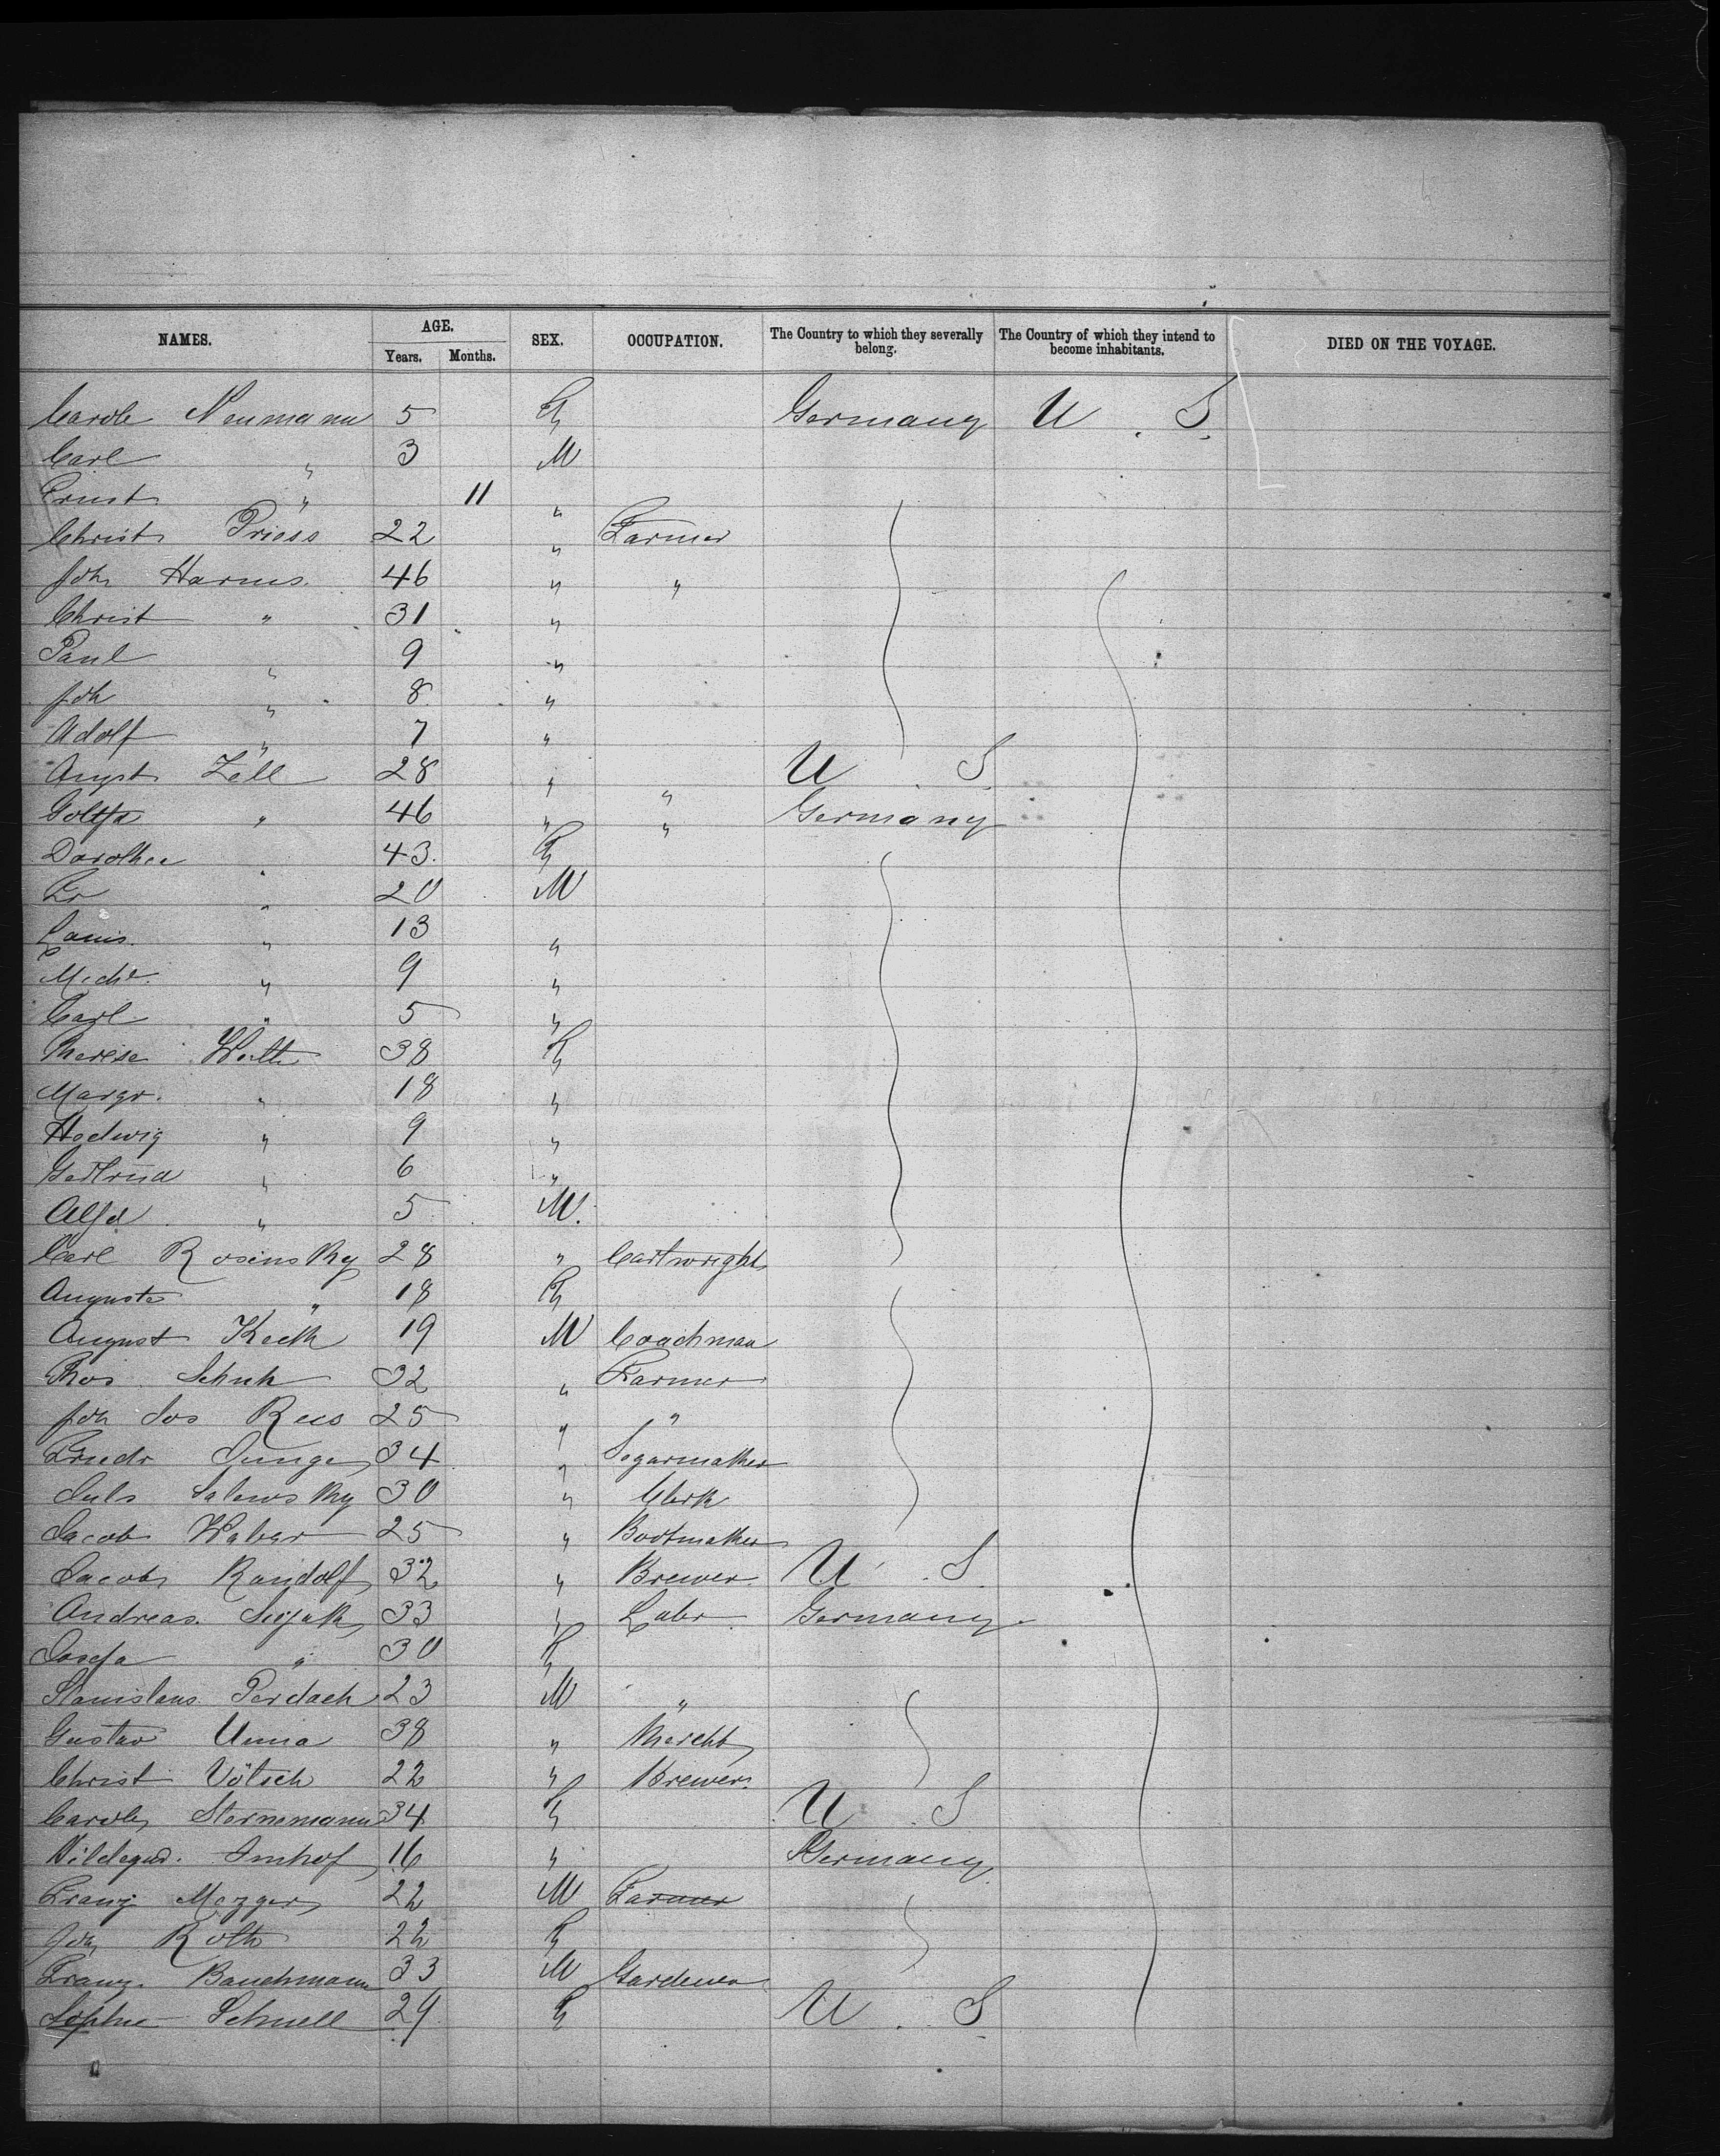 NAMES. AGE. Years. Months. SEX. OCCUPATION. The Country to which they severally belong. The Country of which they intend to become inhabitants. DIED ON THE VOYAGE.
Carole Neumann 5 F Germany U. S.
Carl " 3 M
Ernst " 11 "
Christ Priess 22 " Farmer
Joh Harms. 46 " "
Christ " 31 "
Paul " 9 "
Joh " 8 "
Adolf " 7 "
August Zell 28 " " U S
" 46 " " Germany
Dorothee " 43. F
Fr " 20 M
Louis. " 13 "
Mich. " 9 "
Carl " 5 "
Therese 38 F
Margr. " 18 "
Hedwig " 9 "
Gertrud " 6 "
Alfd " 5 M.
Carl Rosinsky 28 " Cartwright
Auguste " 18 F
August 19 M Coachman
Thos. Schuh 32 " Farmer
Joh Jos Rees 25 " "
Friedr Junge 34 " Segarmaker
Juls Salewsky 30 " Clerk
Jacob Weber 25 " Bootmaker
Jacob Randolf 32 " Brewer. U S
Andreas. 33 " Labr Germany
Josefa " 30 F
Stanislaus Perdach 23 M "
Gustav Unna 38 " Marcht
Christ Vötsch 22 " Brewer.
Carole Sternemann 34 F U. S
Hildegard. Imhof 16 " Germany
Franz Mezger 22 M Farmer
Joh Roth 22 F
Franz. Bauchmann 33 M Gardener
Sophie Schnell 29 F U. S